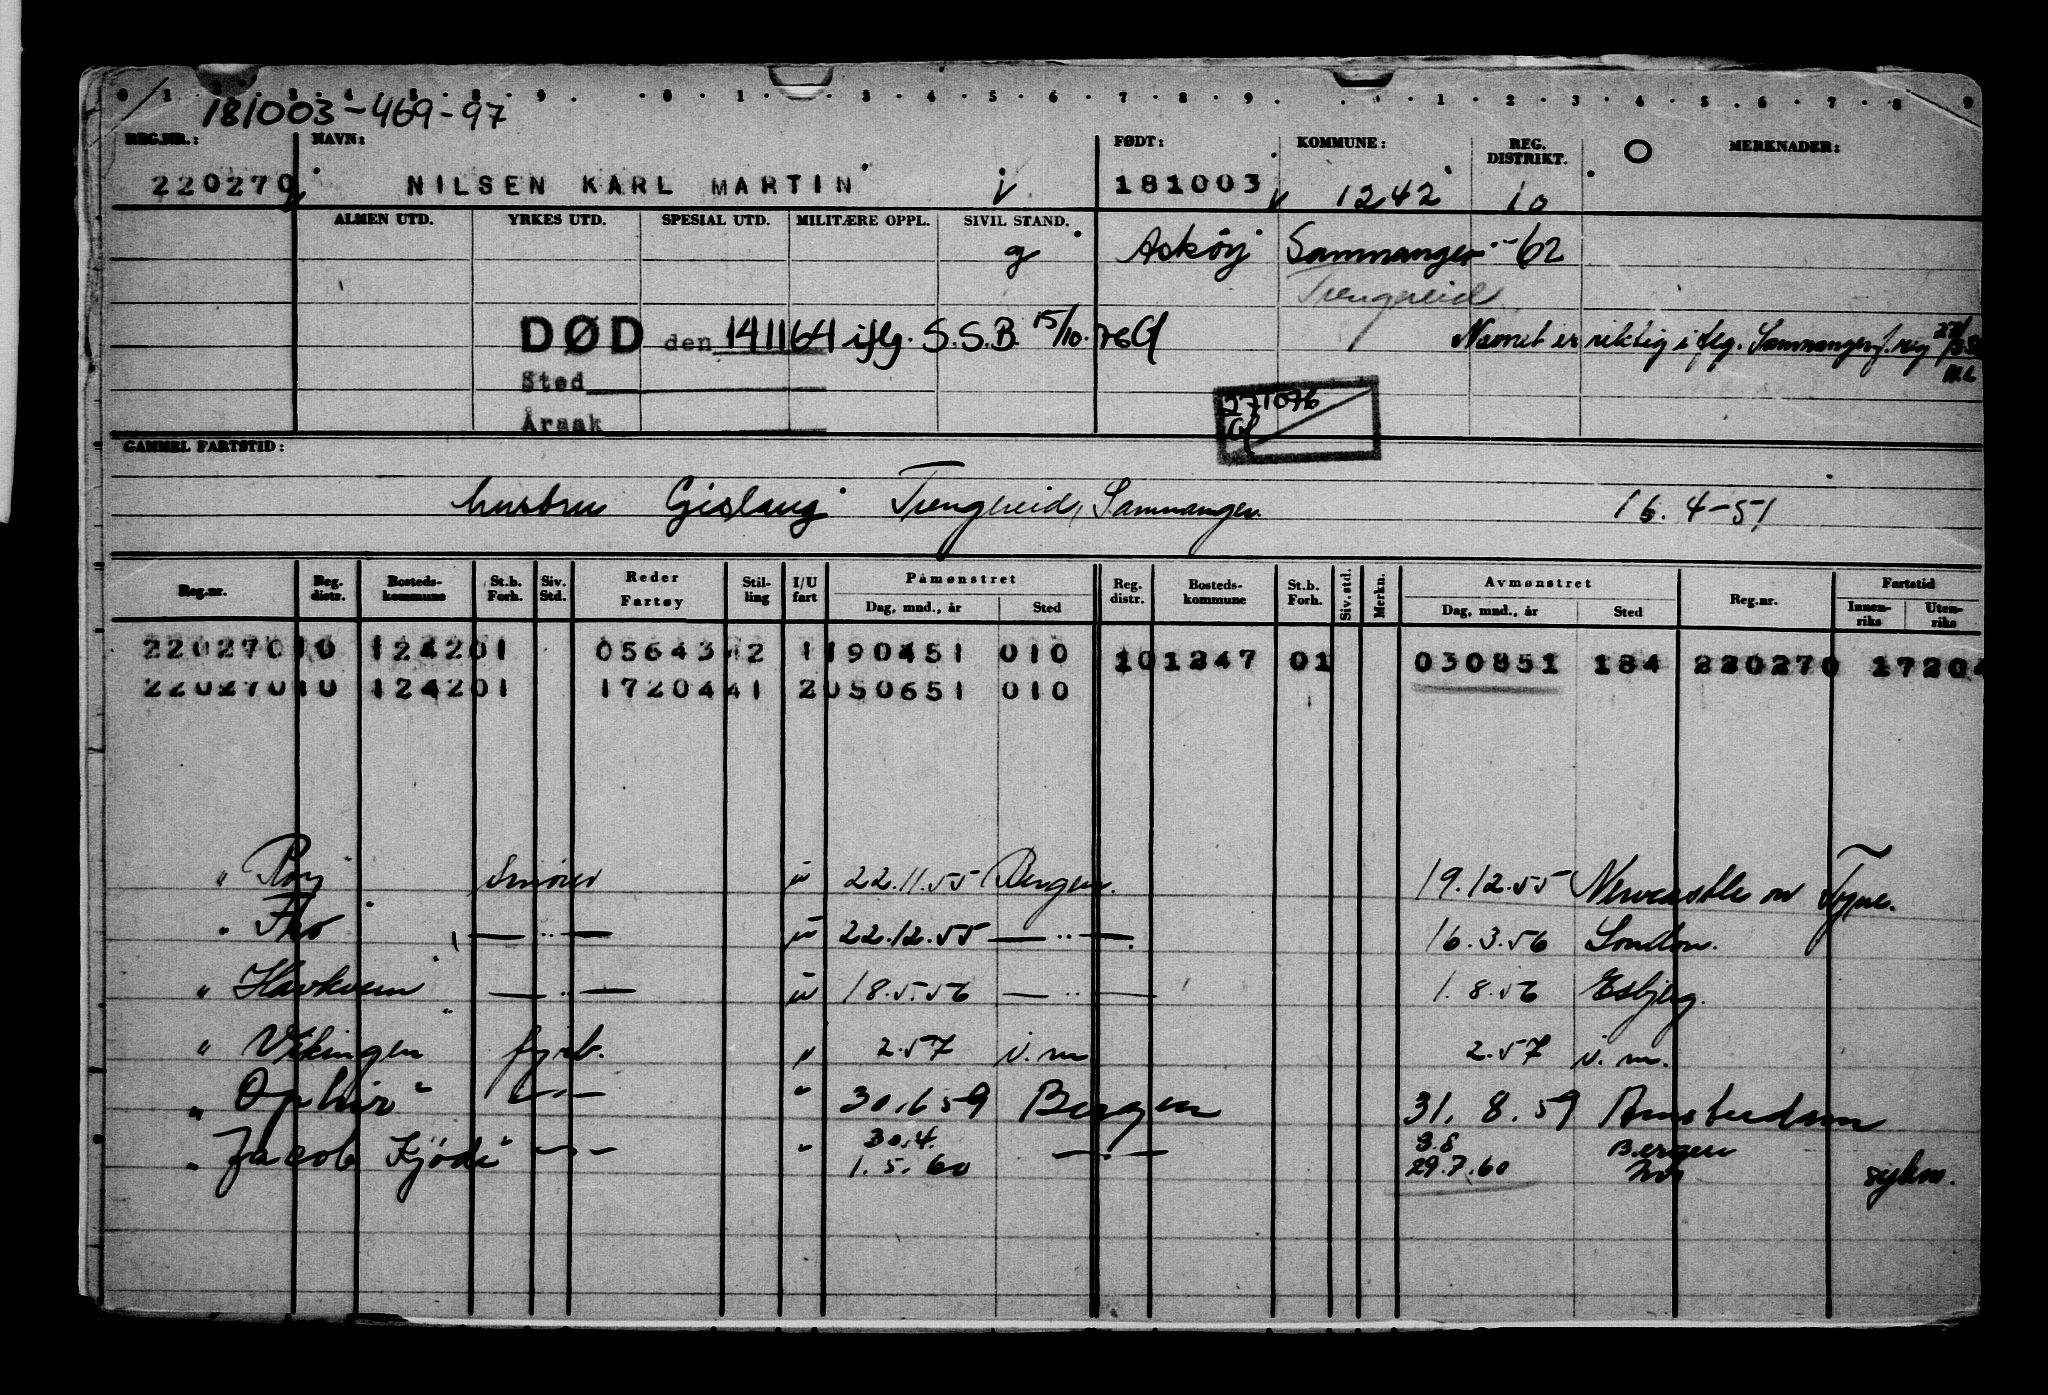 0 1 2 3 4 5 8 9 0 1 2 3 4 5 6 7 8 9 0 1 2 3 4 5 6 7 8 9
181003-469-97
REG.NR.: NAVN: FØDT: KOMMUNE: REG. DISTRIKT. MERKNADER:
220270 NILSEN KARL MARTIN 181003 1242 10
ALMEN UTD. YRKES UTD. SPESIAL UTD. MILITÆRE OPPL. SIVIL STAND.
g Askøy Samnanger -62
Trengereid
DØD den 141164 iflg. S.S.B. 15/10.76 Navnet er riktig i flg. Samnanger f. reg 27/
Sted
Årsak 271076
GAMMEL FARTSTID:
hustru Gislaug Trengereid, Samnanger. 16.4-51
Reg.nr. Reg. distr. Bosteds- kommune St.b. Forh. Siv. Std. Reder Fartøy Stil- ling I/U fart Påmønstret Dag, mnd., år Sted Reg. distr. Bosteds- kommune St.b. Forh. Siv. std. Merkn. Avmønstret Dag, mnd., år Sted Reg.nr. Fartstid Innen- riks Uten- riks
220270 10 1242 01 05643 42 1 190451 010 10 1247 01 030851 184 220270 17204
220270 10 1242 01 17204 41 2 050651 010
" Roy " Smører u 22.11.55 Bergen. 19.12.55 Newcastle on Tyne.
" Tho " — " — u 22.12.55 — " —. 16.3.56 London.
" Havkvern " — " — u 18.5.56 — " — 1.8.56 Esbjerg.
" Vikingen fyrb. " 2.57 i.m 2.57 i.m.
" Ophir " — " — " 30.6 59 Bergen 31.8.59 Amsterdam
" Jacob Kjöde " — " — " 30.4. 1.5.60 — " — 3.8 29.7.60 Bergen sykm.